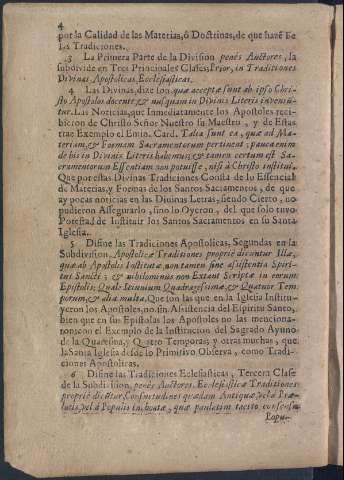 4
por la Calidad de las Materias, ò Doctrinas, de que hazẽ Fe
las Tradiciones.
3 La Primera Parte de la Division penès Auctores, la
subdivide en Tres Principales Clases; Prior, in Traditiones
Divinas, Apostolicas, Ecclesiasticas.
4 Las Divinas, dize son quæ acceptæ sunt ab ipso Chri-
sto Apostolos docente, & nusquam in Divinis Literis inveniũ-
tur. Las Noticias, que Immediatamente los Apostoles reci-
bieron de Christo Señor Nuestro su Maestro, y de Estas
trae Exemplo el Emin. Card. Talia sunt ea, quæ ad Ma-
teriam, & Formam Sacramentorum pertinent; pauca enim
de his in Divinis Literis habemus; & tamen certum est Sa-
cramentorum Essentiam non potuisse, nisi à Christo institui.
Que por estas Divinas Tradiciones Consta de lo Essencial
de Materias, y Formas de los Santos Sacramentos, de que
ay pocas noticias en las Divinas Letras, siendo Cierto, no
pudieron Assegurarlo, sino lo Oyeron, del que solo tuvo
Potestad de Instituir los Santos Sacramentos en su Santa
Iglesia.
5 Difine las Tradiciones Apostolicas, Segundas en la
Subdivision. Apostolicæ Traditiones propriè dicuntur Illæ,
quæ ab Apostolis Institutæ non tamen sine assistentia Spiri-
tus Sancti; & nihilominus non Extent Scriptæ in eorum
Epistolis; Quale Ieiunium Quadragesimæ, & Quatuor Tem-
porum, & alia multa. Que son las que en la Iglesia Institu-
yeron los Apostoles, no sin Assistencia del Espiritu Santo,
bien que en sus Epistolas los Apostoles no las menciona-
ron; con el Exemplo de la Institucion del Sagrado Ayuno
de la Quaresma, y Quatro Temporas y otras muchas, que
la Santa Iglesia desde lo Primitivo Observa, como Tradi-
ciones Apostolicas.
6 Difine las Tradiciones Eclesiasticas, Tercera Clase
de la Subdivision, penès Auctores. Ecclesiasticæ Traditiones
propriè dicũtur, Consuetudines quædam Antiquæ, vel à Præ-
latis, vel à Populis inchoatæ, quæ paulatim tacito consensu
Popu-